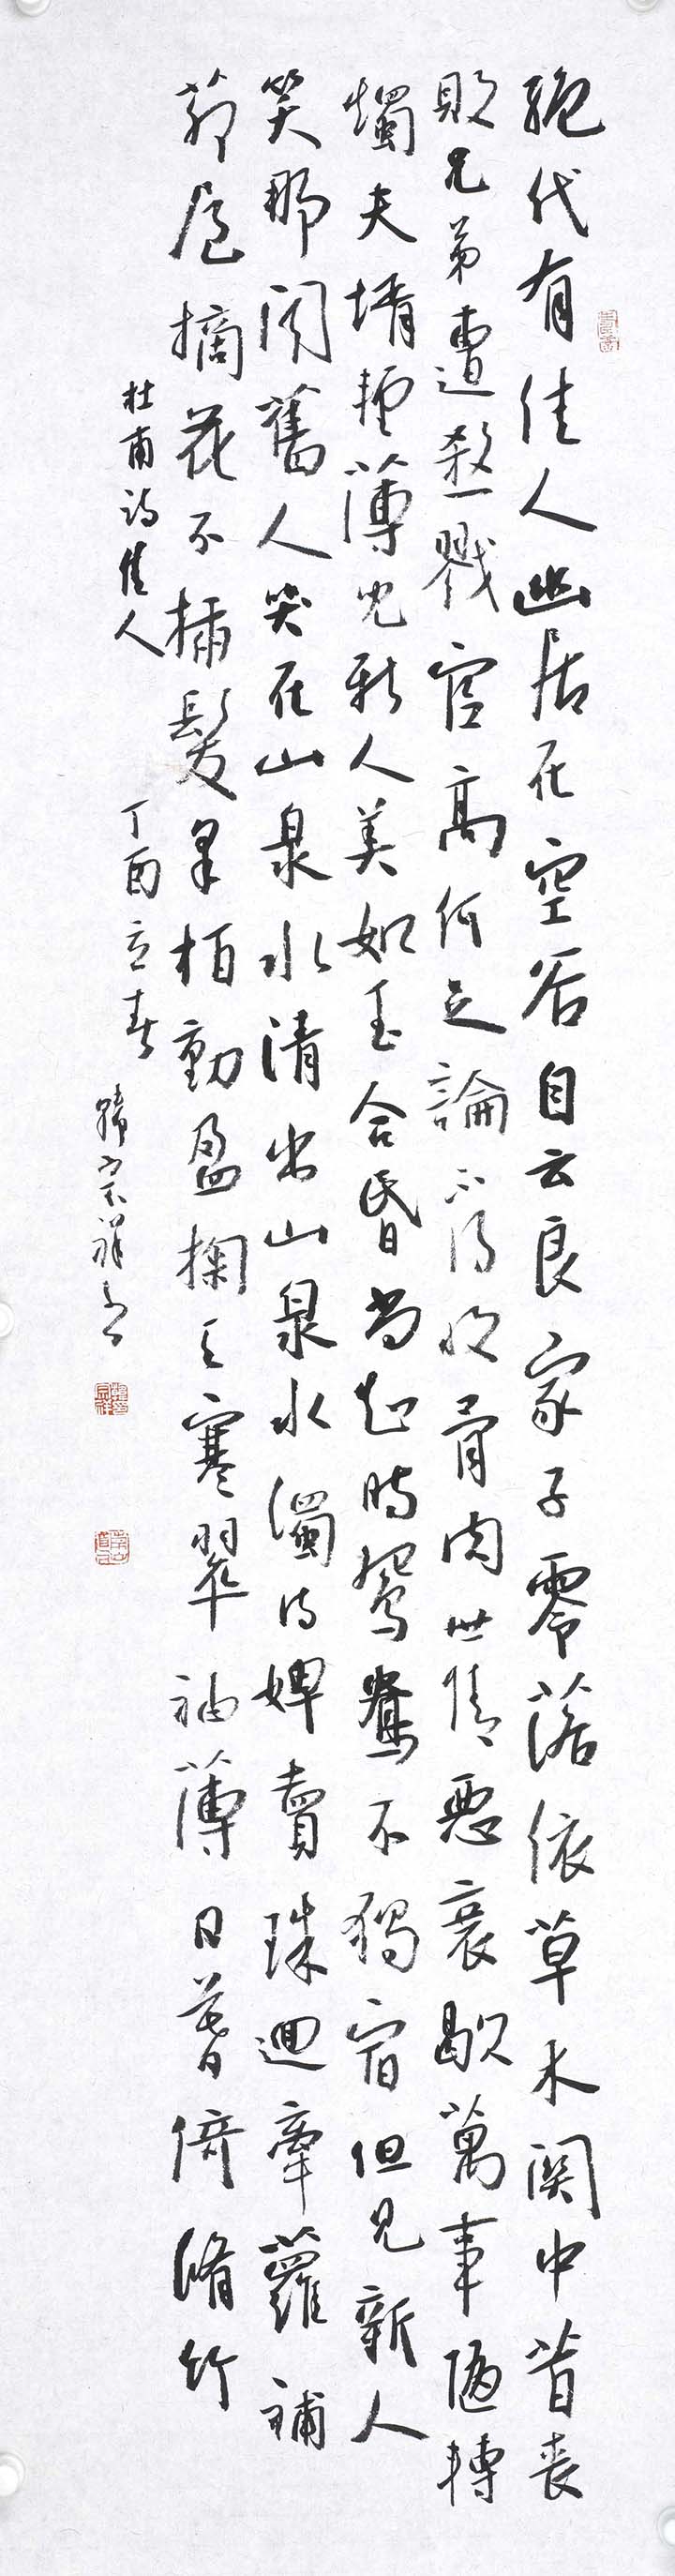 絶代有佳人幽居在空谷自云良家子零落依草木関中昔丧
敗兄弟遭殺戮官高何足論不得收骨肉世情惡衰歇萬事随轉
燭夫壻輕薄兒新人美如玉合昏尚知時鴛鴦不獨宿但見新人
笑那聞舊人哭在山泉水清出山泉水濁侍婢賣珠迴牽蘿補
茆屋摘花不插髮采柏動盈掬天寒翠袖薄日暮倚脩竹
杜甫詩佳人 丁酉立春 韓宗祥書